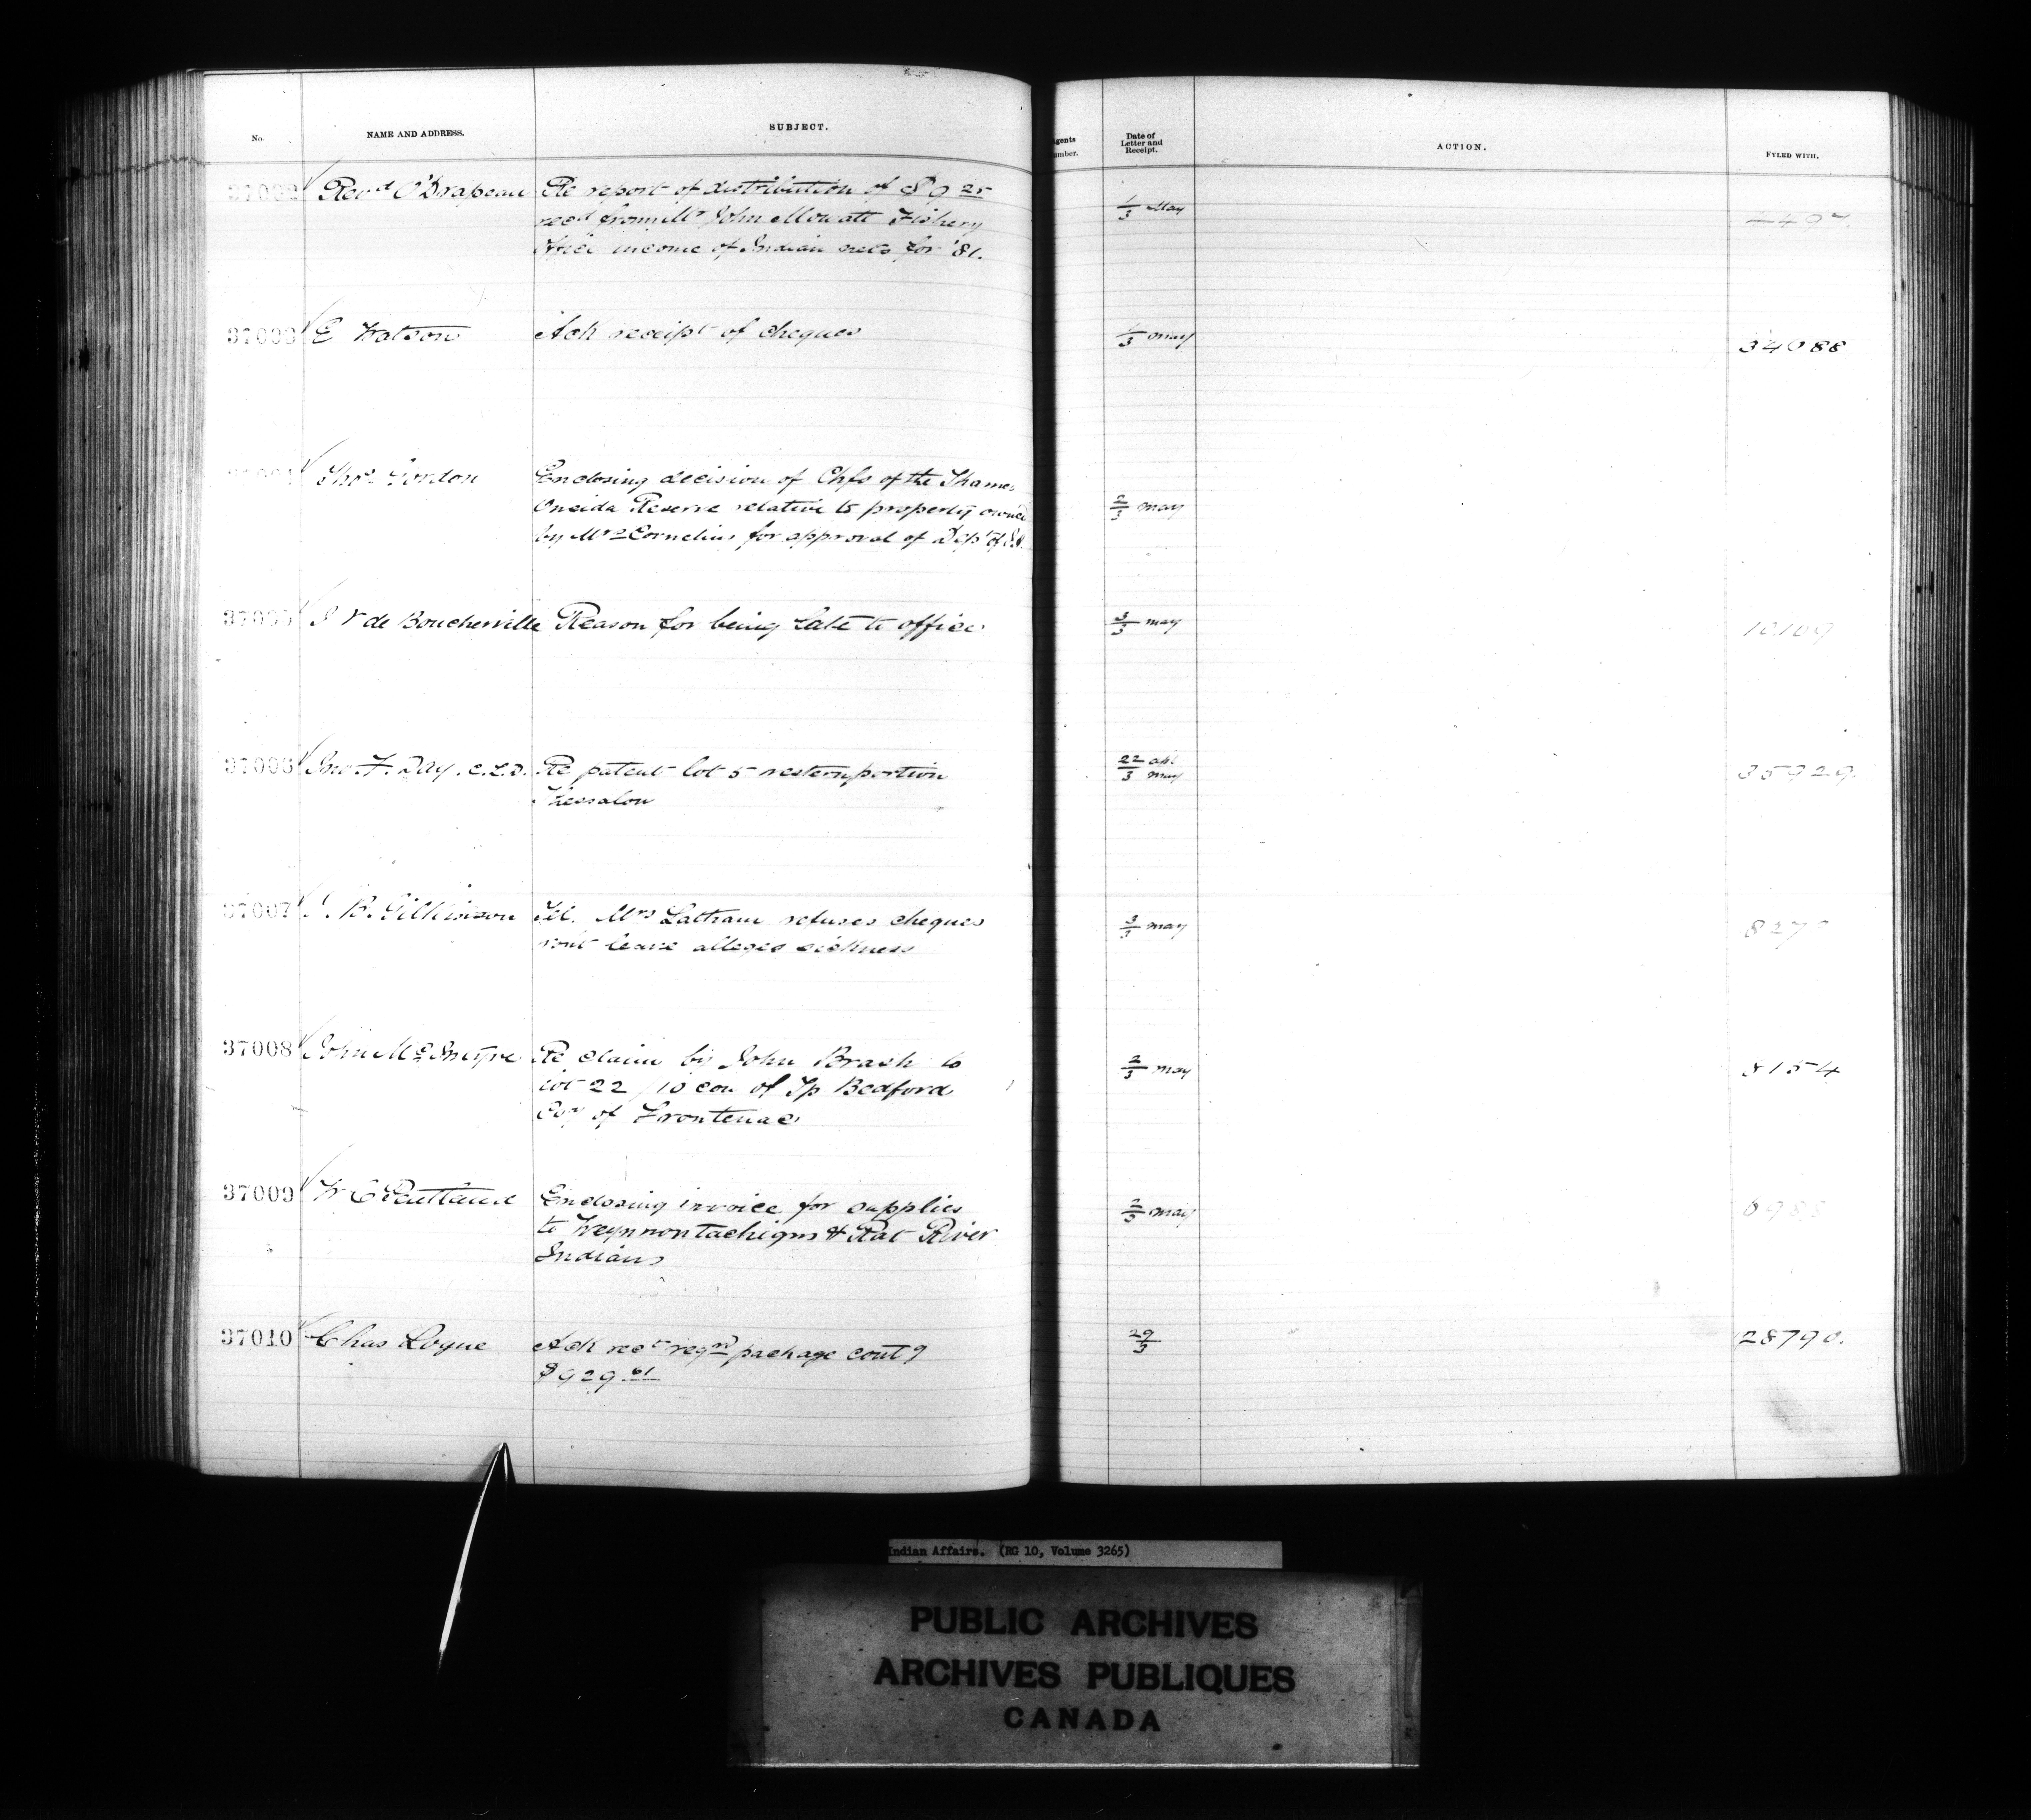 No. NAME AND ADDRESS. SUBJECT. Agents Number. Date of Letter and Receipt. ACTION. FYLED WITH.
37002 Revd O'Drapeau Re report of distribution of $9 25 1/3 May
recd from Mr John Mowatt Fishery
Offcr income of Indian nets for '81.
37003 E Watson Ack receipt of cheques 1/3 May 34088
Thos Gordon Enclosing decision of Chfs of the Thames
Oneida Reserve relative to property owned 2/3 May
by Mrs Cornelius for approval of Dept of I.A.
37005 de Boucherville Reason for being late to office 3/3 May 10109
37006 Jno. F. Day. C.L.S. Re patent lot 5 western portion 22 apl/3 May 35929.
Thessalon
37007 J. B. Gilkinson Tel. Mrs Latham refuses cheques 3/3 May
wont leave alleges sickness
37008 John McIntyre Re claim by John Brash to 2/3 May 8154
lot 22 / 10 con of Tp Bedford
Coy of Frontenac
37009 W C Pentland Enclosing invoice for supplies 2/3 May
to Weymontachique & Rat River
Indians
37010 Chas Logue Ack rect regd package contg 29/3 28790.
$929.61
Indian Affairs. (RG 10, Volume 3265)
PUBLIC ARCHIVES
ARCHIVES PUBLIQUES
CANADA